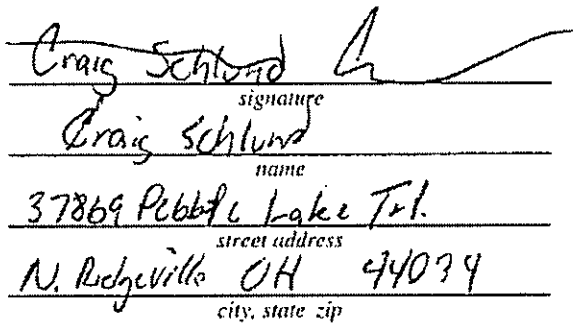 Craig Schlund
signature
Craig Schlund
name
37869 Pebble Lake Trl.
street address
N. Ridgeville OH 44039
city, state zip